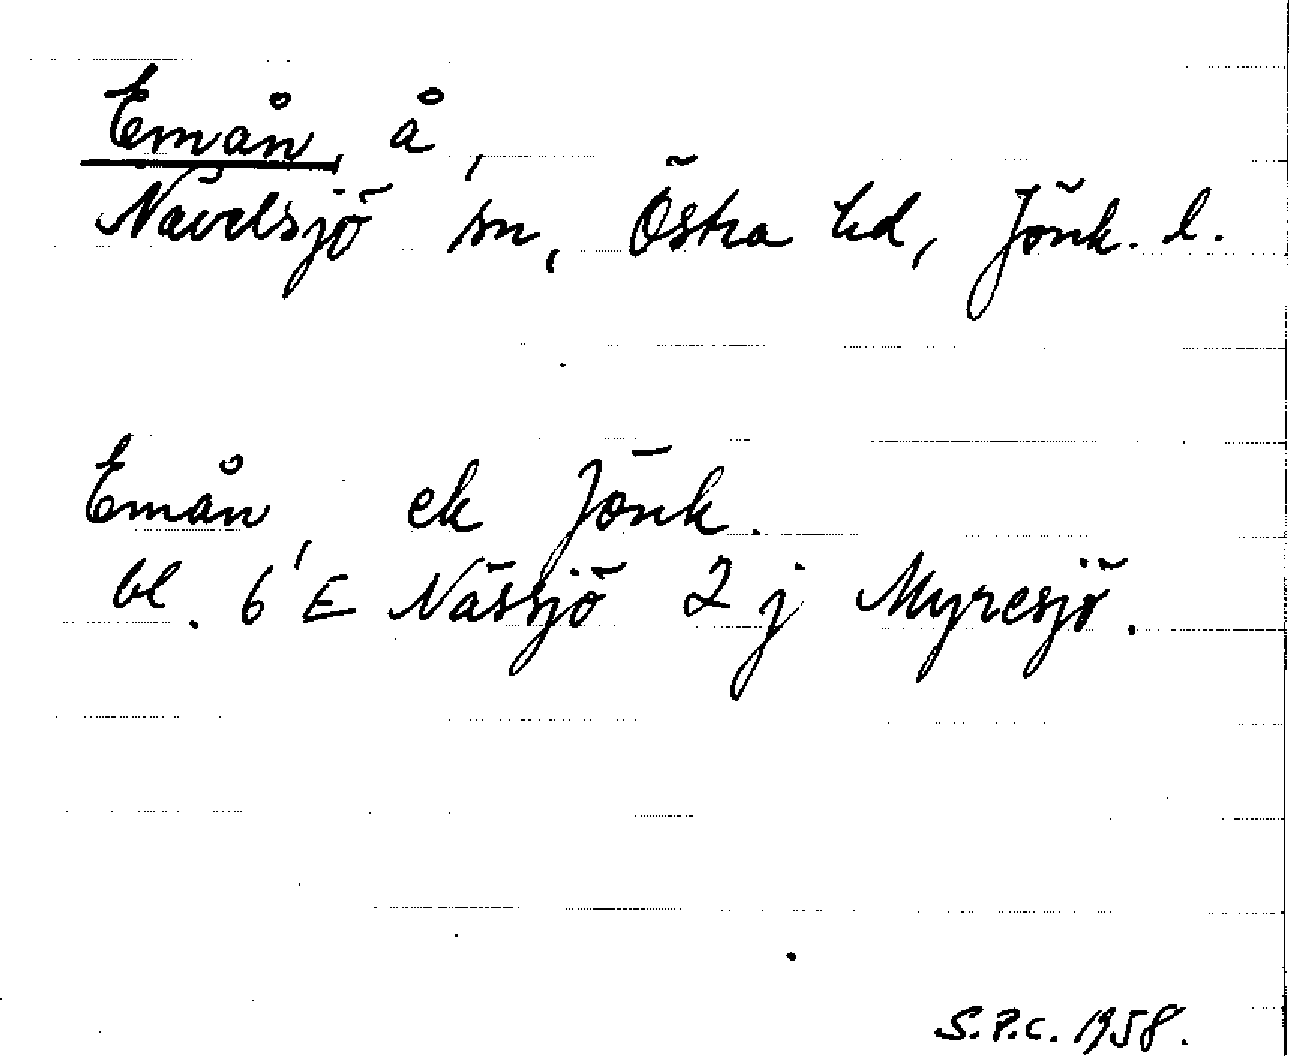 Emån, å,
Nävelsjö sn, Östra hd, Jönk. l.
Emån, ek Jönk.
bl. 6 E Nässjö 2 j Myresjö.
S.P.C. 1958.